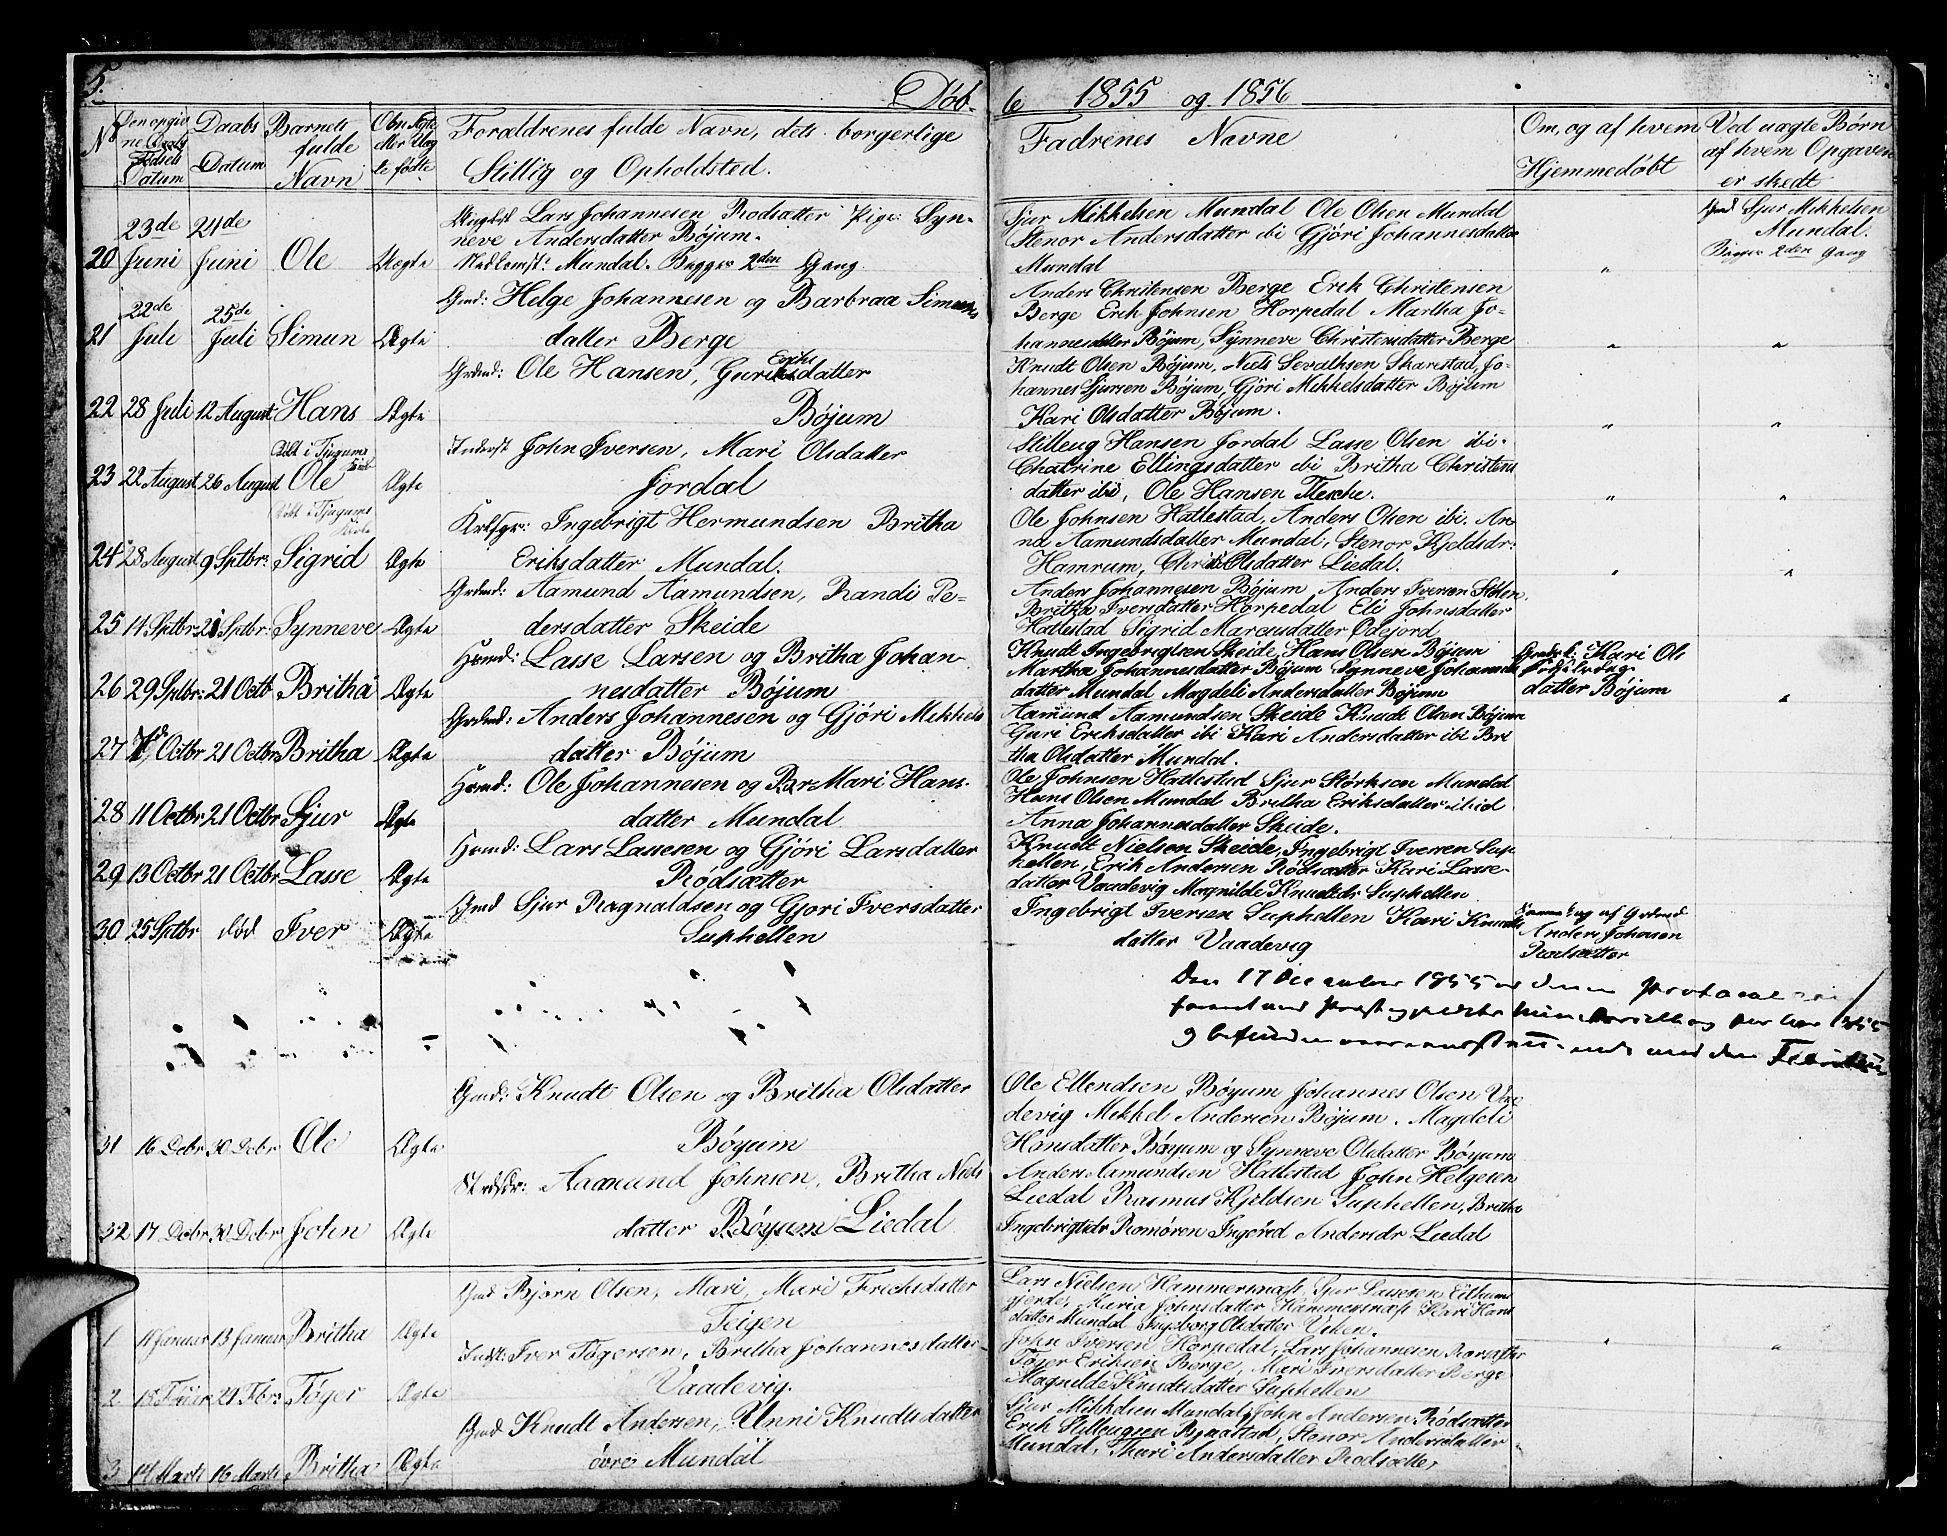 5.
Døb-
6 1855 og 1856
No
Den opgiv
ne
Fødsels
Datum
Daabs
Datum
Barnets
fulde
Navn
Om Ægte
eller Uæg
te fødte
Forældrenes fulde Navn, dets borgerlige
Stillig og Opholdsted.
Fadrenes Navne
Om, og af hvem
Hjemmedøbt
Ved uægte Børn
af hvem Opgaven
er skedt
20 23de Juni 24de Juni Ole Uægte
Ungkarl Lars Johannesen Rødsætter Pige: Syn-
neve Andersdatter Bøjum.
Mundal. Begges 2den Gang.
Sjur Mikkelsen Mundal Ole Olsen Mundal
Stenor Andersdatter ibi Gjøri Johannesdatter
Mundal
Gmd Sjur Mikkelsen
Mundal.
Begges 2den Gang
21 22de Juli 25de Juli Simun Ægte
Gmd: Helge Johannesen og Barbraa Simuns
datter Berge
Anders Christensen Berge Erik Christensen
Berge Erik Johnsen Horpedal Martha Jo-
hannesdatter Bøjum, Synneve Christensdatter Berge
22 28 Juli 12 August Hans Ægte
Grdmd: Ole Hansen, Guri Eriksdatter
Bøjum
Knudt Olsen Bøjum, Niels Sevaltsen Skarestad, Jo-
hannes Sjursen Bøjum, Gjøri Mikkelsdatter Bøjum
Kari Olsdatter Bøjum.
Døbt i Tjugums
23 22 August 26 August Ole Ægte
Inderst John Iversen, Mari Olsdatter
Jordal
Stilleug Hansen Jordal Lasse Olsen ibi.
Chatrine Ellingsdatter ibi Britha Christens
datter ibi, Ole Hansen Flesche.
Døbt i Tjugums
Kirke
24 28 August 9 Sptbr: Sigrid Ægte
Ingebrigt Hermundsen Britha
Eriksdatter Mundal.
Ole Johnsen Hattestad, Anders Olsen ibi. An
na Aamundsdatter Mundal, Stenor Kjeldsdr:
Hamrum, Olsdatter Liedal.
25 14 Sptbr: 21 Sptbr: Synneve Ægte
Grdmd: Aamund Aamundsen, Randi Pe-
dersdatter Skeide
Anders Johannesen Bøjum Anders Iversen
Britha Iversdatter Horpedal Eli Johnsdatter
Hattestad Sigrid Marcusdatter Ødejord
26 29 Sptbr: 21 Octb Britha Ægte
Hsmd: Lasse Larsen og Britha Johan-
nesdatter Bøjum
Knudt Ingebrigtsen Skeide, Hans Olsen Bøjum
Martha Johannesdatter Bøjum Synneve Johannes
datter Mundal Magdeli Andersdatter Bøjum
Kari Ols
datter Bøjum
27 7de Octbr 21 Octbr Britha Ægte
Grdmd: Anders Johannesen og Gjøri Mikkels
datter Bøjum
Aamund Aamundsen Skeide Knudt Olsen Bøjum
Guri Eriksdatter ibi Kari Andersdatter ibi Bri
tha Olsdatter Mundal.
28 11 Octbr 21 Octbr Sjur Ægte
Hsmd: Ole Johannesen og Mari Hans-
datter Mundal
Ole Johnsen Hattestad Sjur Størksen Mundal
Hans Olsen Mundal Britha Eriksdatter ibid
Anna Johannesdatter Skeide.
29 13 Octbr 21 Octbr Lasse Ægte
Hsmd: Lars Lassesen og Gjøri Larsdatter
Rødsætter
Knudt Nielsen Skeide, Ingebrigt Iversen Sup
hellen, Erik Andersen Rødsætter Kari Lasse-
datter Vaadevig Magnilde Knudtsdr Suphellen
30 25 Sptbr død Iver Ægte
Gmd Sjur Ragnaldsen og Gjøri Iversdatter
Suphellen
Ingebrigt Iversen Suphellen Kari Knudts
datter Vaadevig
af Grdmd
Anders Johnsen
Rødsætter
Den 17 December 1855 er denne Protocol
31 16 Debr 30 Debr Ole Ægte
Gmd: Knudt Olsen og Britha Olsdatter
Bøyum
Ole Ellendsen Bøyum Johannes Olsen Vaa
devig Mikkel Andersen Bøjum. Magdeli
Hansdatter Bøyum og Synneve Olsdatter Bøyum
32 17 Debr 30 Debr John Ægte
Aamund Johnsen, Britha Niels
datter Bøyum Liedal
Anders Aamundsen Hattestad John Helgesen
Liedal Rasmus Kjeldsen Suphellen, Britha
Ingebrigtsdr Romøren Ingerid Andersdr Liedal
1 11 Januar 13 Januar Britha Ægte
Gmd Bjørn Olsen, Mari, Mari Frichsdatter
Teigen
Lars Nielsen Hammersnæst, Sjur Lassesen
gjerde, Maria Johnsdatter Hammersnæst Kari Hans
datter Mundal Ingeborg Olsdatter Veken.
2 24 Febr: Tøger Ægte
Indst: Iver Tøgersen, Britha Johannesdatter
Vaadevig.
John Iversen Horpedal, Lars Johannesen Rødsætter
Tøger Eriksen Berge, Mari Iversdatter Berge
Magnilde Knudtsdatter Suphellen
3 14 Marts 16 Marts Britha Ægte
Gmd Knudt Andersen, Unni Knudtsdatter
øvre Mundal
Sjur Mikkelsen Mundal, John Andersen Rødsætter
Erik Stillougsen Stenor Andersdatter
Mundal, Kari Andersdatter Rødsætter